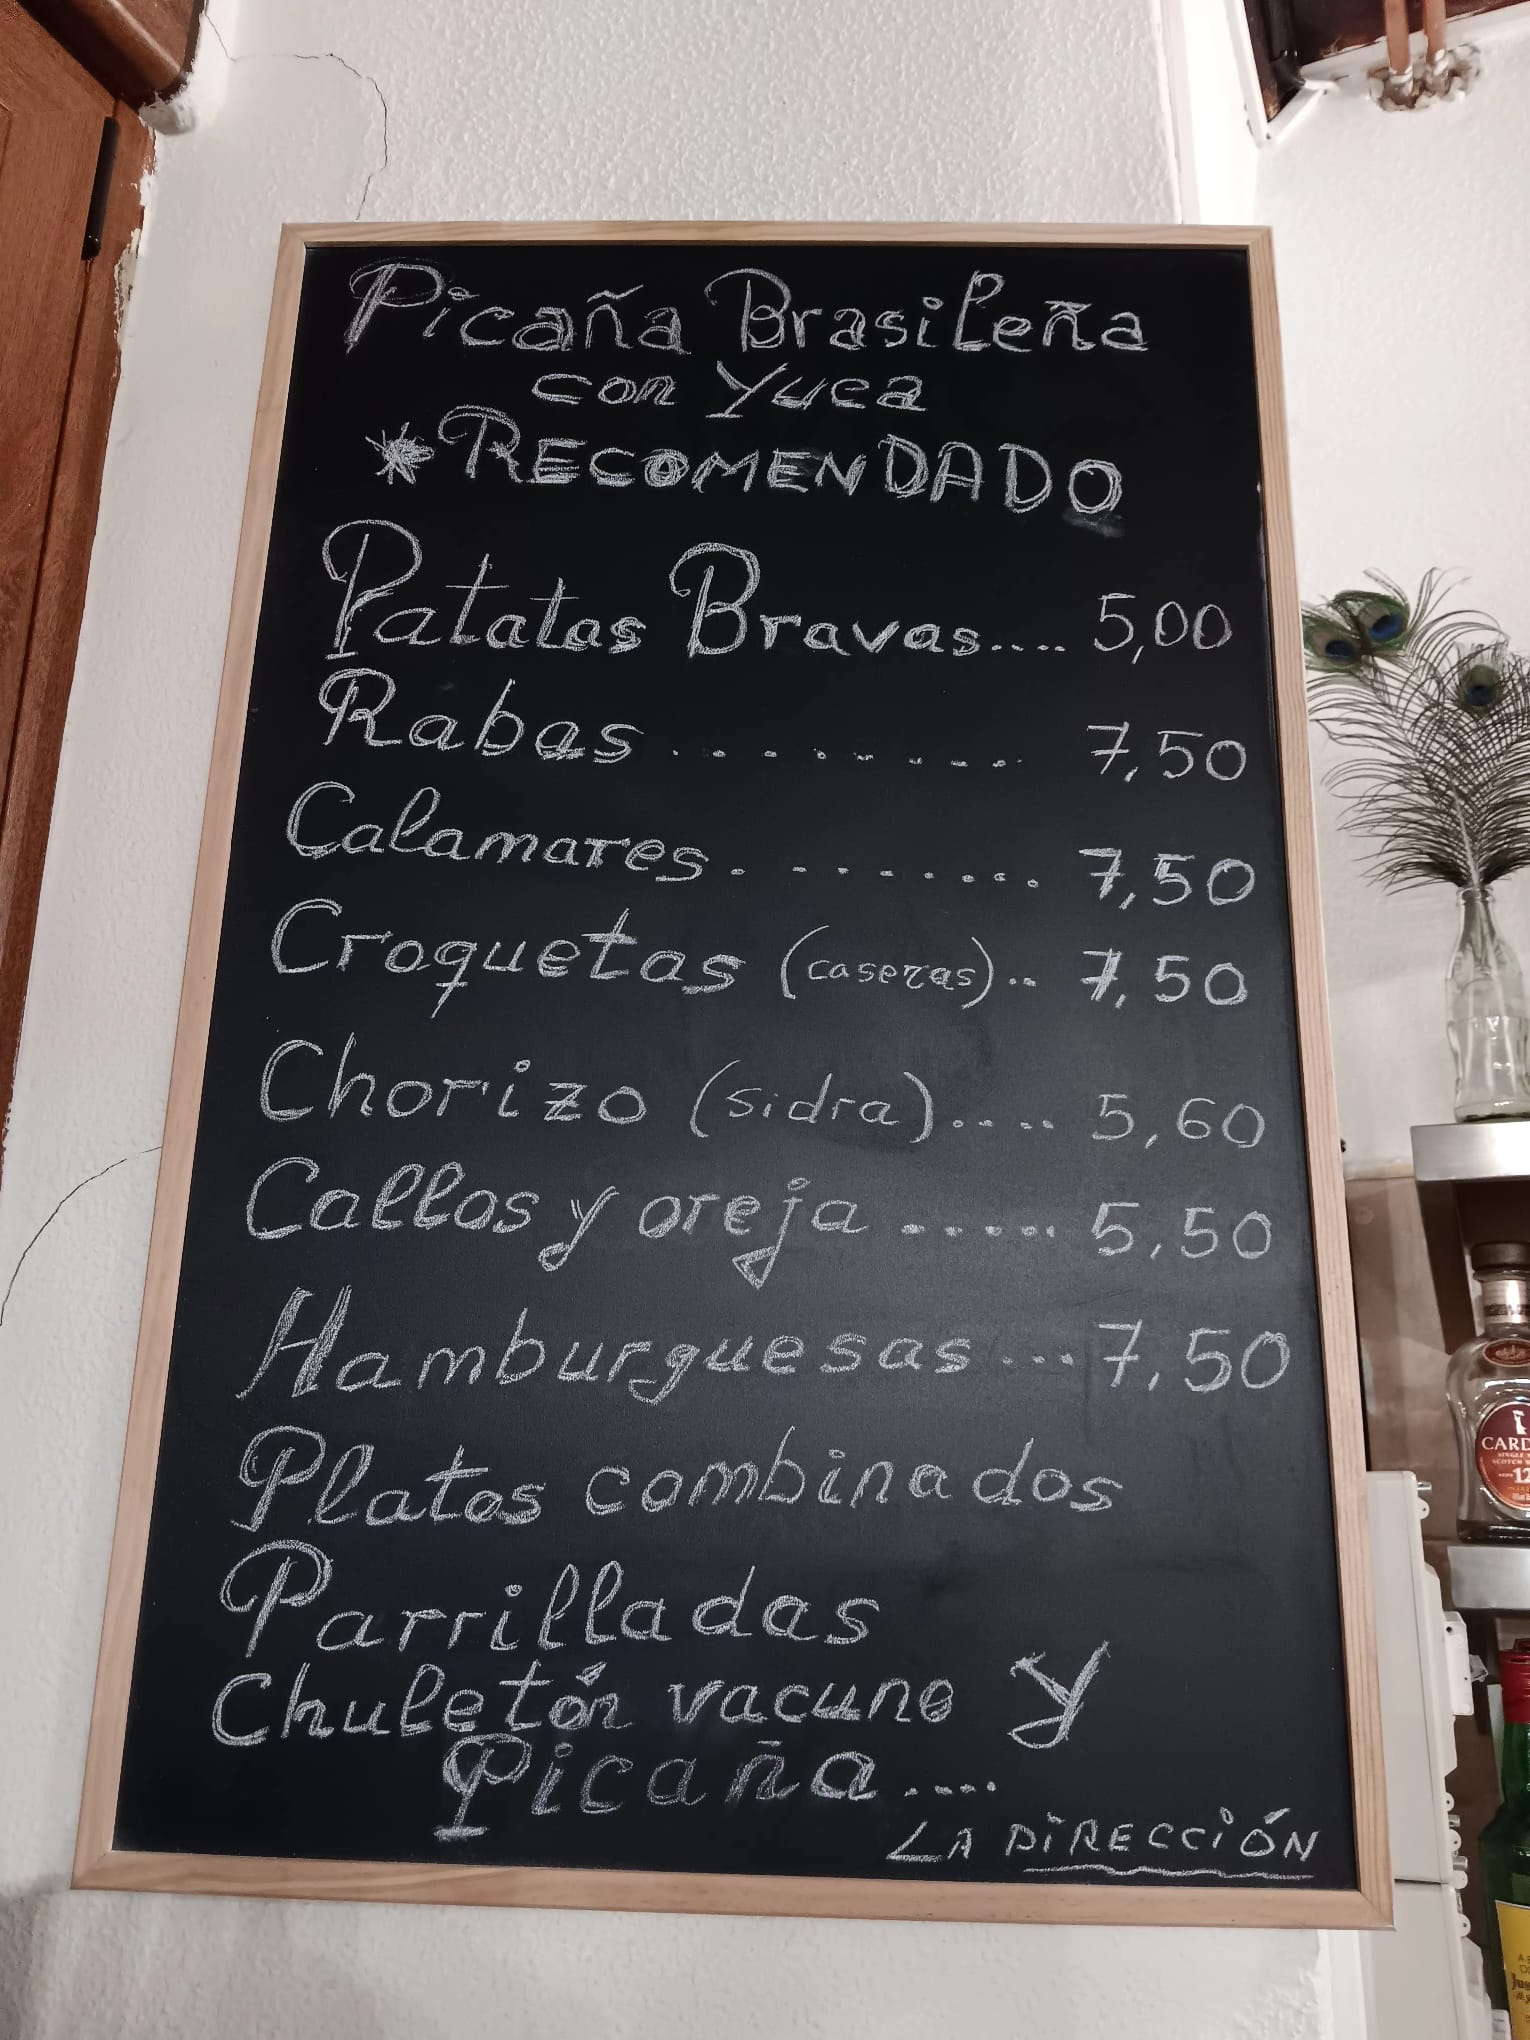 Picaña Brasileña
con Yuca
*RECOMENDADO
Patatas Bravas.... 5,00
Rabas ......... 7,50
Calamares ........ 7,50
Croquetas (caseras).. 7,50
Chorizo (sidra).... 5,60
Callos y oreja ..... 5,50
Hamburguesas ... 7,50
Platos combinados
Parrilladas
Chuletón vacuno y
Picaña ....
LA DIRECCIÓN
CARD
12